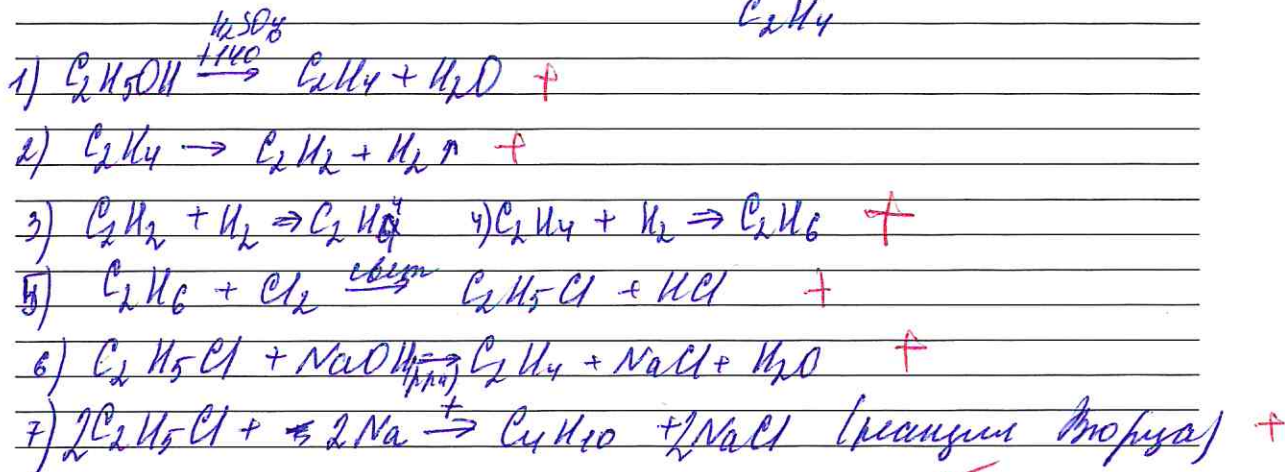 C₂H₄
H₂SO₄
+140
1) C₂H₅OH → C₂H₄ + H₂O +
2) C₂H₄ → C₂H₂ + H₂↑ +
3) C₂H₂ + H₂ ⇒ C₂H₄ 4) C₂H₄ + H₂ ⇒ C₂H₆ +
свет
5) C₂H₆ + Cl₂ → C₂H₅Cl + HCl +
6) C₂H₅Cl + NaOH → C₂H₄ + NaCl + H₂O +
7) 2C₂H₅Cl + 2Na → C₄H₁₀ + 2NaCl (реакция Вюрца) +